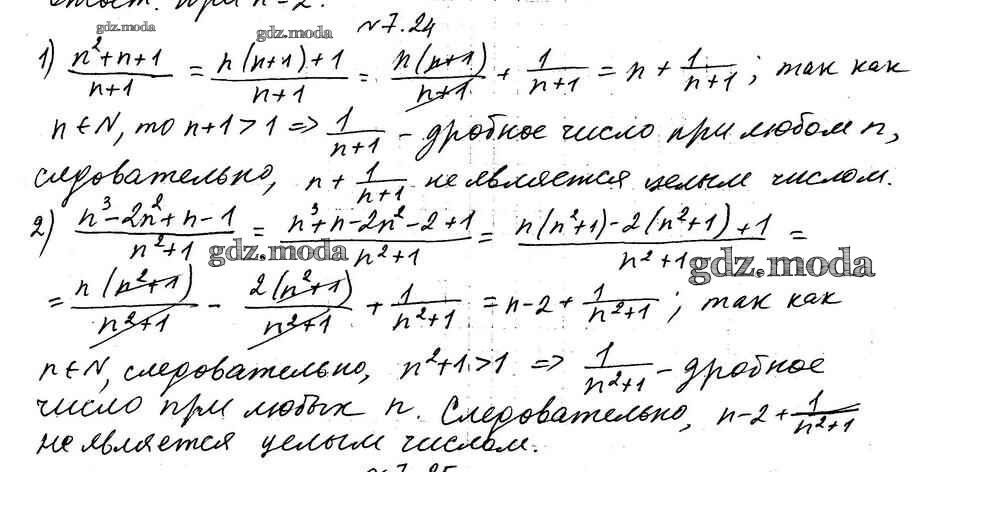 ответ. при n = 2.
gdz.moda gdz.moda №7.24
1) \frac{n^2+n+1}{n+1} = \frac{n(n+1)+1}{n+1} = \frac{n(n+1)}{n+1} + \frac{1}{n+1} = n + \frac{1}{n+1}; так как
n∈N, то n+1>1 => \frac{1}{n+1} - дробное число при любом n,
следовательно, n + \frac{1}{n+1} не является целым числом.
2) \frac{n^3-2n^2+n-1}{n^2+1} = \frac{n^3+n-2n^2-2+1}{n^2+1} = \frac{n(n^2+1)-2(n^2+1)+1}{n^2+1} =
gdz.moda gdz.moda
= \frac{n(n^2+1)}{n^2+1} - \frac{2(n^2+1)}{n^2+1} + \frac{1}{n^2+1} = n-2+\frac{1}{n^2+1}; так как
n∈N, следовательно, n^2+1>1 => \frac{1}{n^2+1} - дробное
число при любых n. Следовательно, n-2+\frac{1}{n^2+1}
не является целым числом.